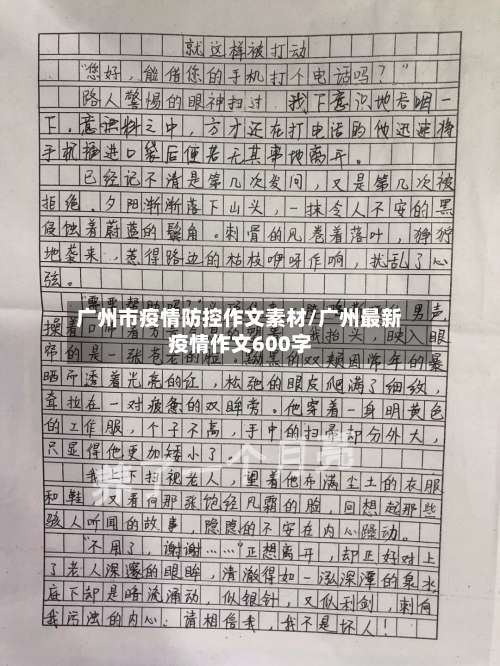 就这样被打动
“您好,能借您的手机打个电话吗?”
路人警惕的眼神扫过,我下意识地吞咽一
下。意料之中,方才还在打电话的他迅速将
手机揣进口袋后便若无其事地离开。
已经记不清是第几次发问,又是第几次被
拒绝。夕阳渐渐落下山头,一抹令人不安的黑
侵蚀着蔚蓝的鬓角。刺骨的风卷着落叶,狰狞
地袭来,惹得路边的枯枝咿呀作响,扰乱了心
弦。
男声,
广州市疫情防控作文素材/广州最新
疫情作文600字
操着
映入眼
帘的是一张苍老的脸。黝黑的双颊因常年的暴
晒而透着光亮的红,松弛的眼皮爬满了细纹,
耷拉在一对疲惫的双眸旁。他穿着一身明黄色
的工作服,个子不高,手中的扫帚却分外大,
只显得他更加矮小了。
我上下扫视老人,望着他布满尘土的衣服
和鞋,又看向那张饱经风霜的脸,回想起那些
骇人听闻的故事,隐隐的不安在内心躁动。
“不用了,谢谢……”正想离开,却正好对上
了老人深邃的眼眸,清澈得如一泓深潭的泉水,
底下却是暗流涌动,似银针,又似利剑,刺向
我污浊的内心:请相信我,我不是坏人!